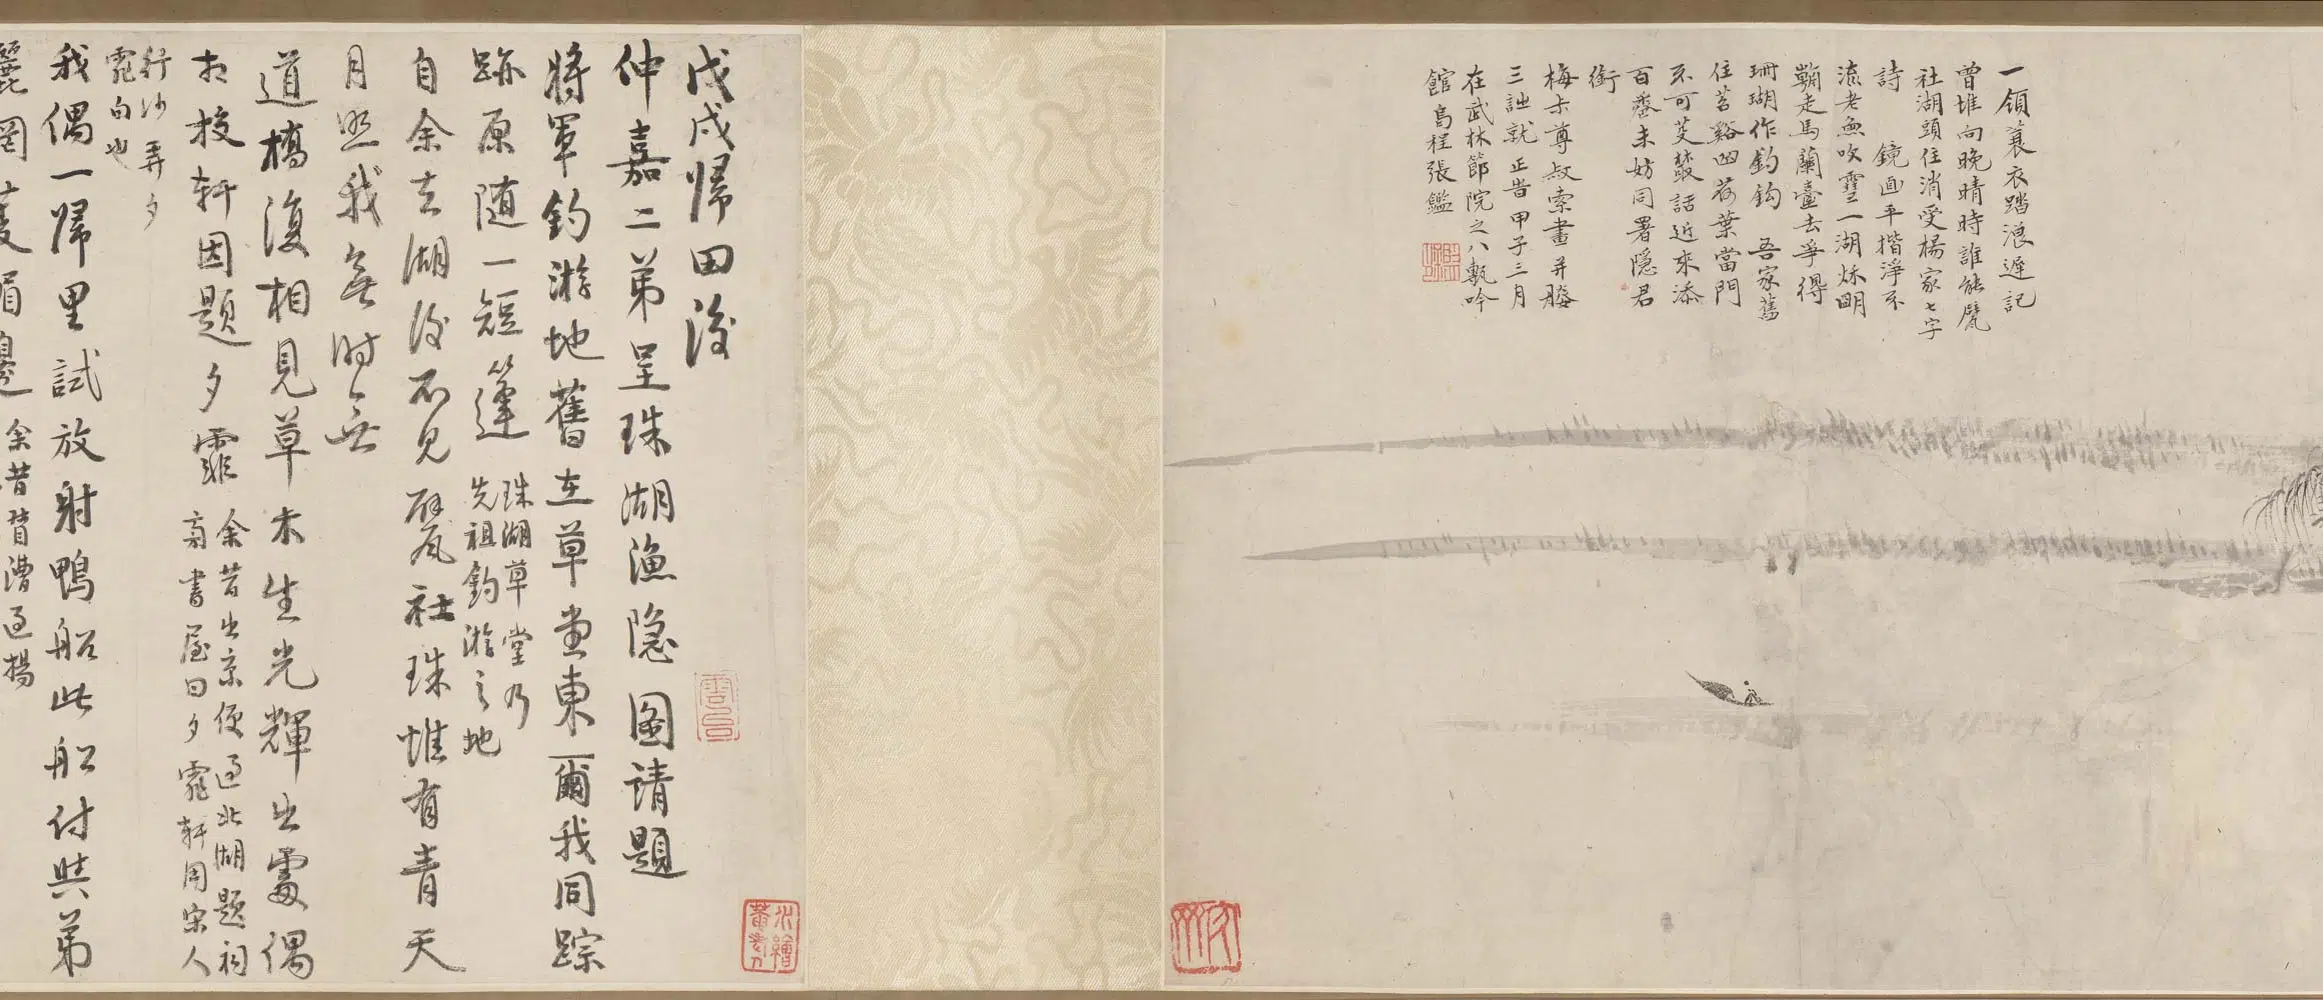 一領蓑衣踏浪遲記
曾堆向晚晴時誰能甓
社湖頭住消受楊家七字
詩 鏡面平揩淨不
流老魚吹雪一湖秋 明
鞘走馬蘭臺去爭得
珊瑚作釣鈎 吾家舊
住苕谿曲荷葉當門
不可芟 話近來添
百番未妨同署隱君
銜
梅尗尊叔索畫并媵
三 就正旹甲子三月
在武林節院之八甎吟
館烏程張鑑
戊戌歸田後
仲嘉二弟呈珠湖漁隱圖請題
將軍釣游地舊在草堂東爾我同踪
跡原隨一短篷
珠湖草堂乃
先祖釣游之地
自余去湖後不見甓社珠惟有青天
月照我無時無
道橋復相見草木生光輝出處偶
相校軒因題夕霏
余昔出京便過北湖題祠
旁書屋曰夕霏軒用宋人
行沙弄夕
霏句也
我偶一歸里試放射鴨船此船付與弟
眉邊
余昔督漕過揚